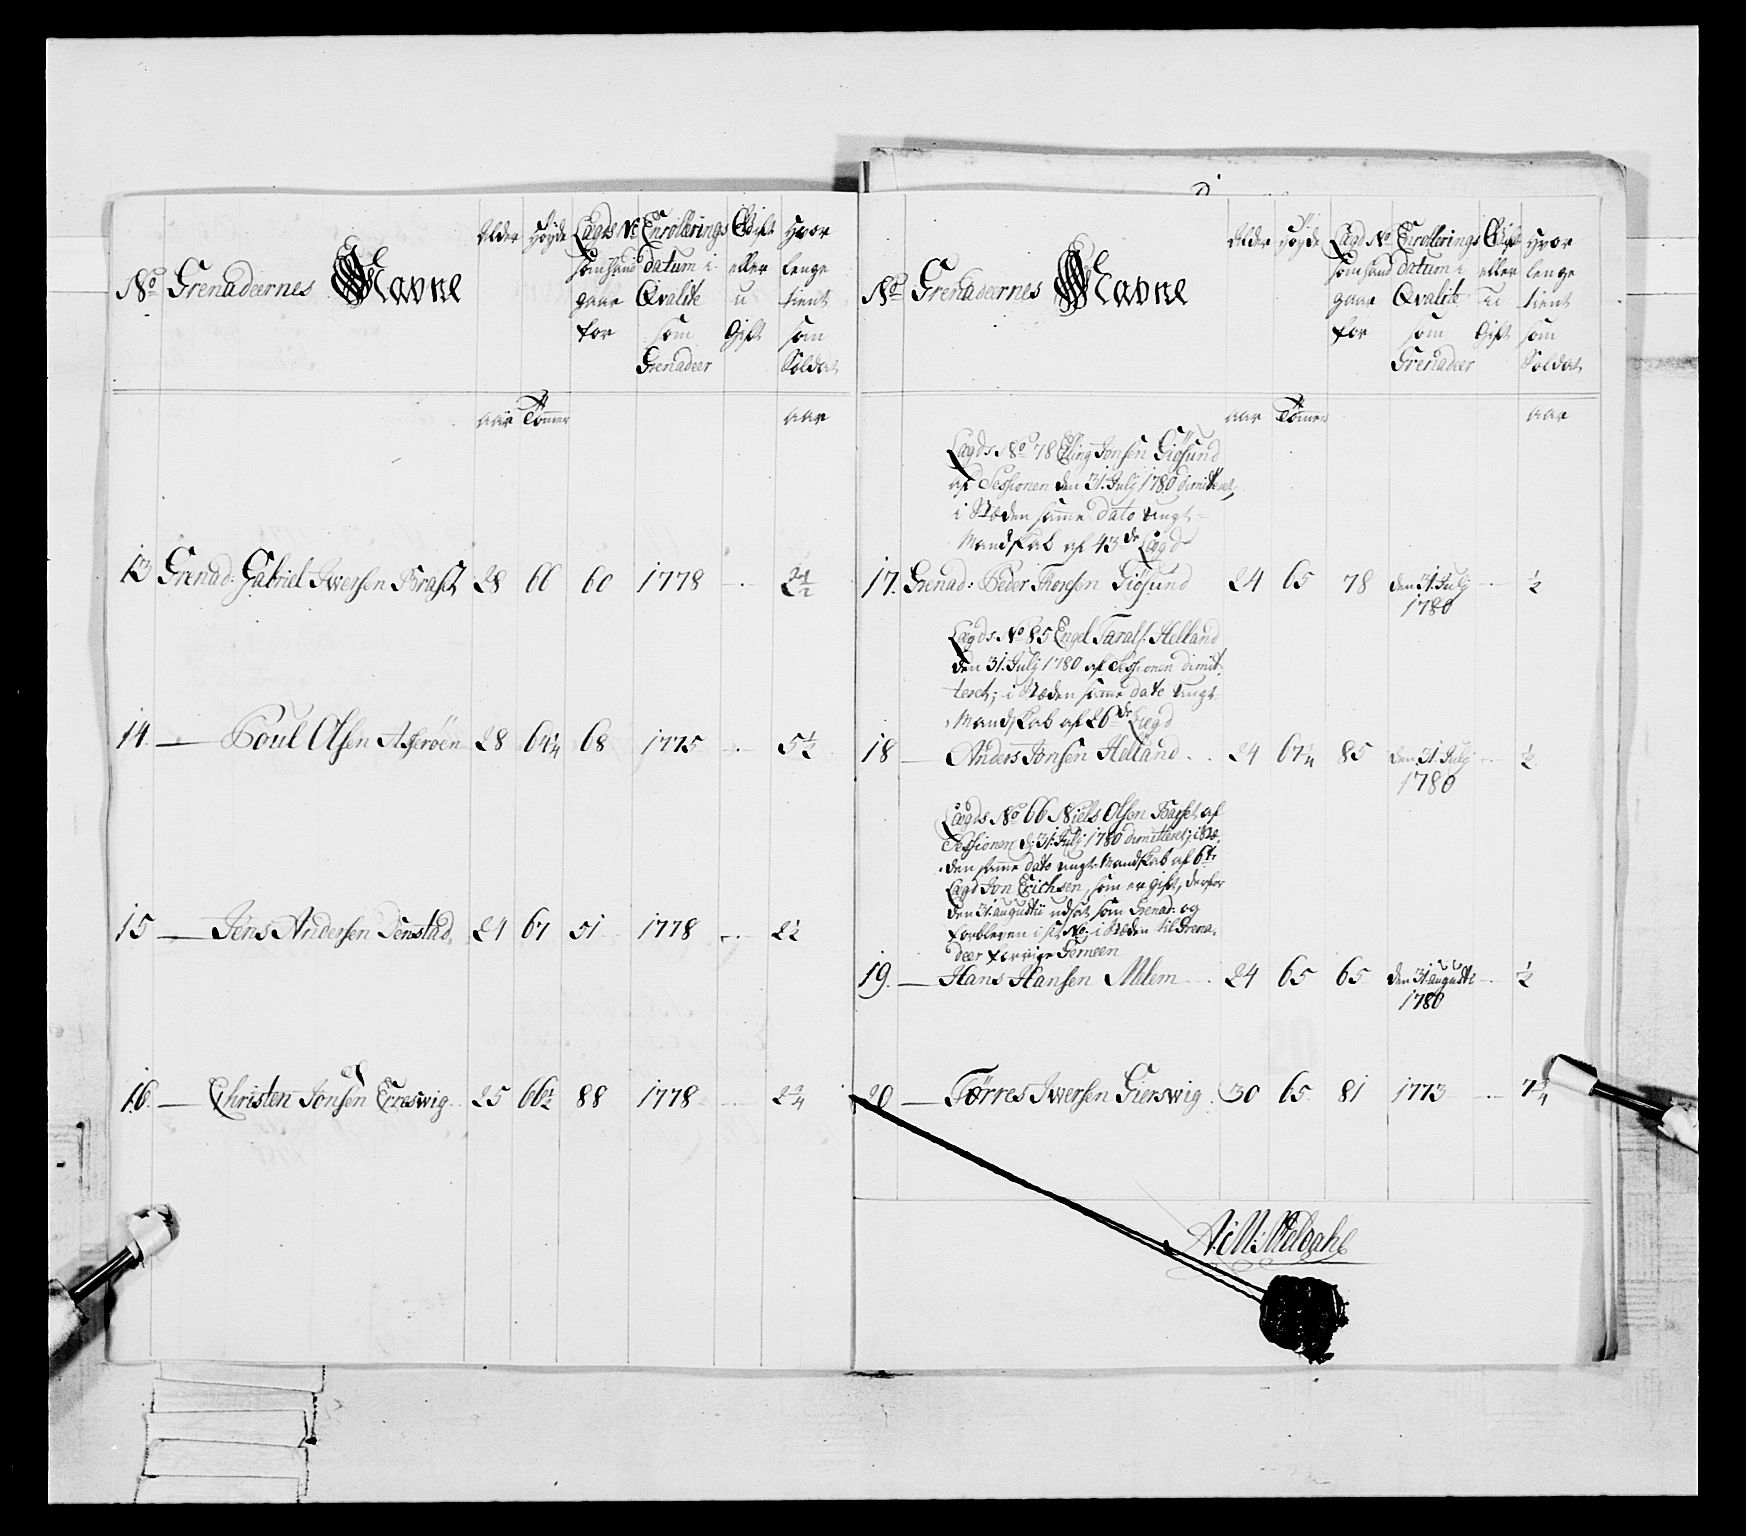 No Grenadeernes Navne
Alder
Høyde
Lægds No som hand gaar for
Enrollerings datum i Qvalite som Grenadeer
Gift eller u Gift
Hvor lenge tient som Soldat
aar Tommer aar
13 Grenad: Gabriel Iwersen 28 66 60 1778 — 2½
14. — Poul Olsen 28 64¼ 68 1775 — 5½
15 — Jens Andersen Jenstad 24 67 51 1778 — 2½
16. — Christen Jonsen 25 66½ 88 1778 — 2¾
No Grenadeernes Navne
Alder
Høyde
Lægd No som hand gaar for
Enrollerings datum i Qvalite som Grenadeer
Gift eller u Gift
Hvor lenge tient som Soldat
aar Tommer aar
Lægds No 78 Elling Jonsen Giøsund
af Sessionen den 31. Julj 1780 dimitteret,
i Stæden samme dato ungt
Mandskab af 43de Lægd
17. Grenad: Peder Thorsen Giøsund 24 65 78 den 31. Julj — ½
1780
Lægds No 85 Engel Tarals. Helland
den 31. Julj 1780 af Sessionen dimit
teret; i Stæden samme dato ungt
Mandskab af 26de Lægd
18 — Anders Jonsen Helland 24 67¼ 85 den 31. Julj — ½
1780
Lægds No 66 Niels Olsen af
Sessionen d. 31. Julj 1780 dimitteret; i Stæ
den samme dato ungt Mandskab af 6te
Lægd Jon Erichsen, som er gift, derfor
den 31. augustii udsat som Grenad: og
forbleven i sit No: i Stæden til Grena
deer forrige
19. — Hans Hansen 24 65 65 den 31. augusti — ½
1780
20 — Tørres Iwersen Gierswig 30 65 81 1773 — 7¾